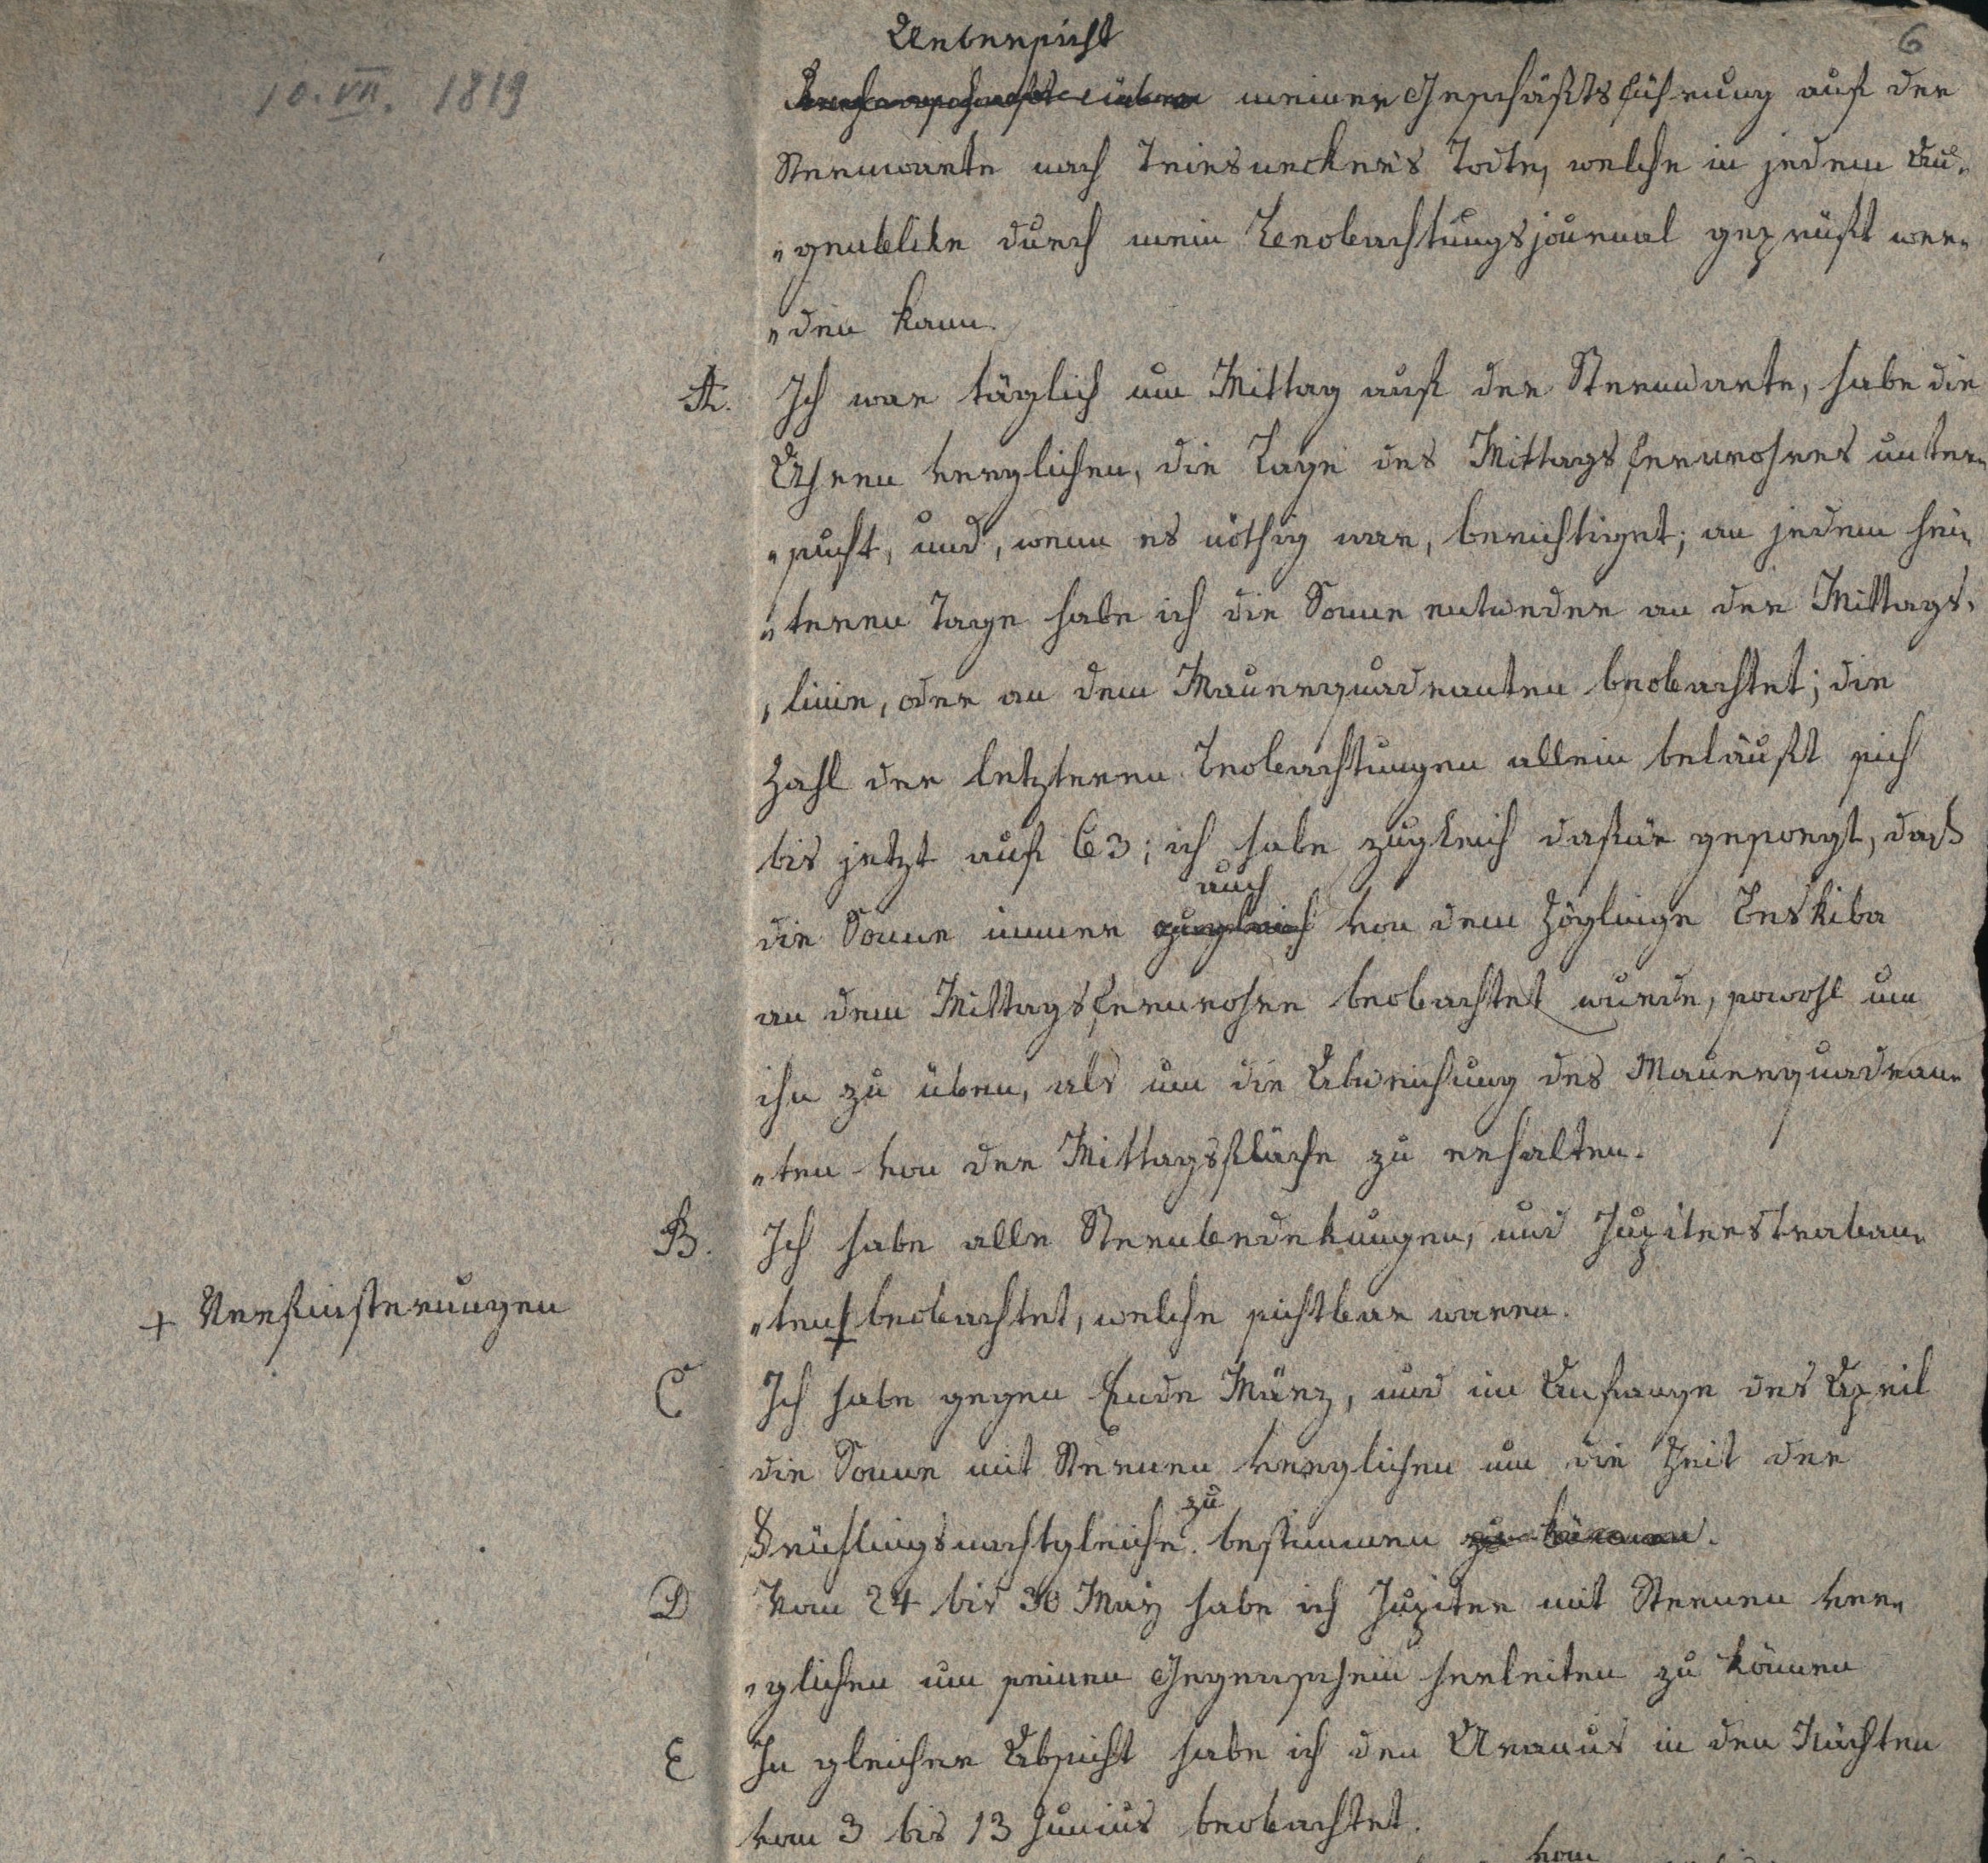 Uebersicht
6
10. VII. 1819
Rechenschaft über meiner Geschäftsführung auf der
Sternwarte nach Triesneckers Tode, welche in jedem Au„
„genblicke durch mein Beobachtungsjournal geprüft wer„
„den kann.
A. Ich war täglich um Mittag auf der Sternwarte, habe die
Uhren verglichen, die Lage des Mittagsfernrohres unter„
„sucht, und, wenn es nöthig war, berichtiget; an jedem hei„
„teren Tage habe ich die Sonne entweder an der Mittags„
„linie, oder an dem Mauerquadranten beobachtet; die
Zahl der letzteren Beobachtungen allein beläuft sich
bis jetzt auf 63; ich habe zugleich dafür gesorgt, daß
auch
die Sonne immer zugleich von dem Zöglinge
an dem Mittagsfernrohre beobachtet wurde, sowohl um
ihn zu üben, als um die Abweichung des Mauerquadran„
„ten von der Mittagsfläche zu erhalten.
B. Ich habe alle Sternbedekungen, und Jupiterstraban„
+ Verfinsterungen
„ten + beobachtet, welche sichtbar waren.
C Ich habe gegen Ende März, und im Anfange des April
die Sonne mit Sternen verglichen um die Zeit der
zu
Frühlingsnachtgleiche bestimmen zu können.
D Vom 24 bis 30 May habe ich Jupiter mit Sternen ver„
„glichen um seinen Gegenschein herleiten zu können
E In gleicher Absicht habe ich den Uranus in den Nächten
vom 3 bis 13 Junius beobachtet.
vom